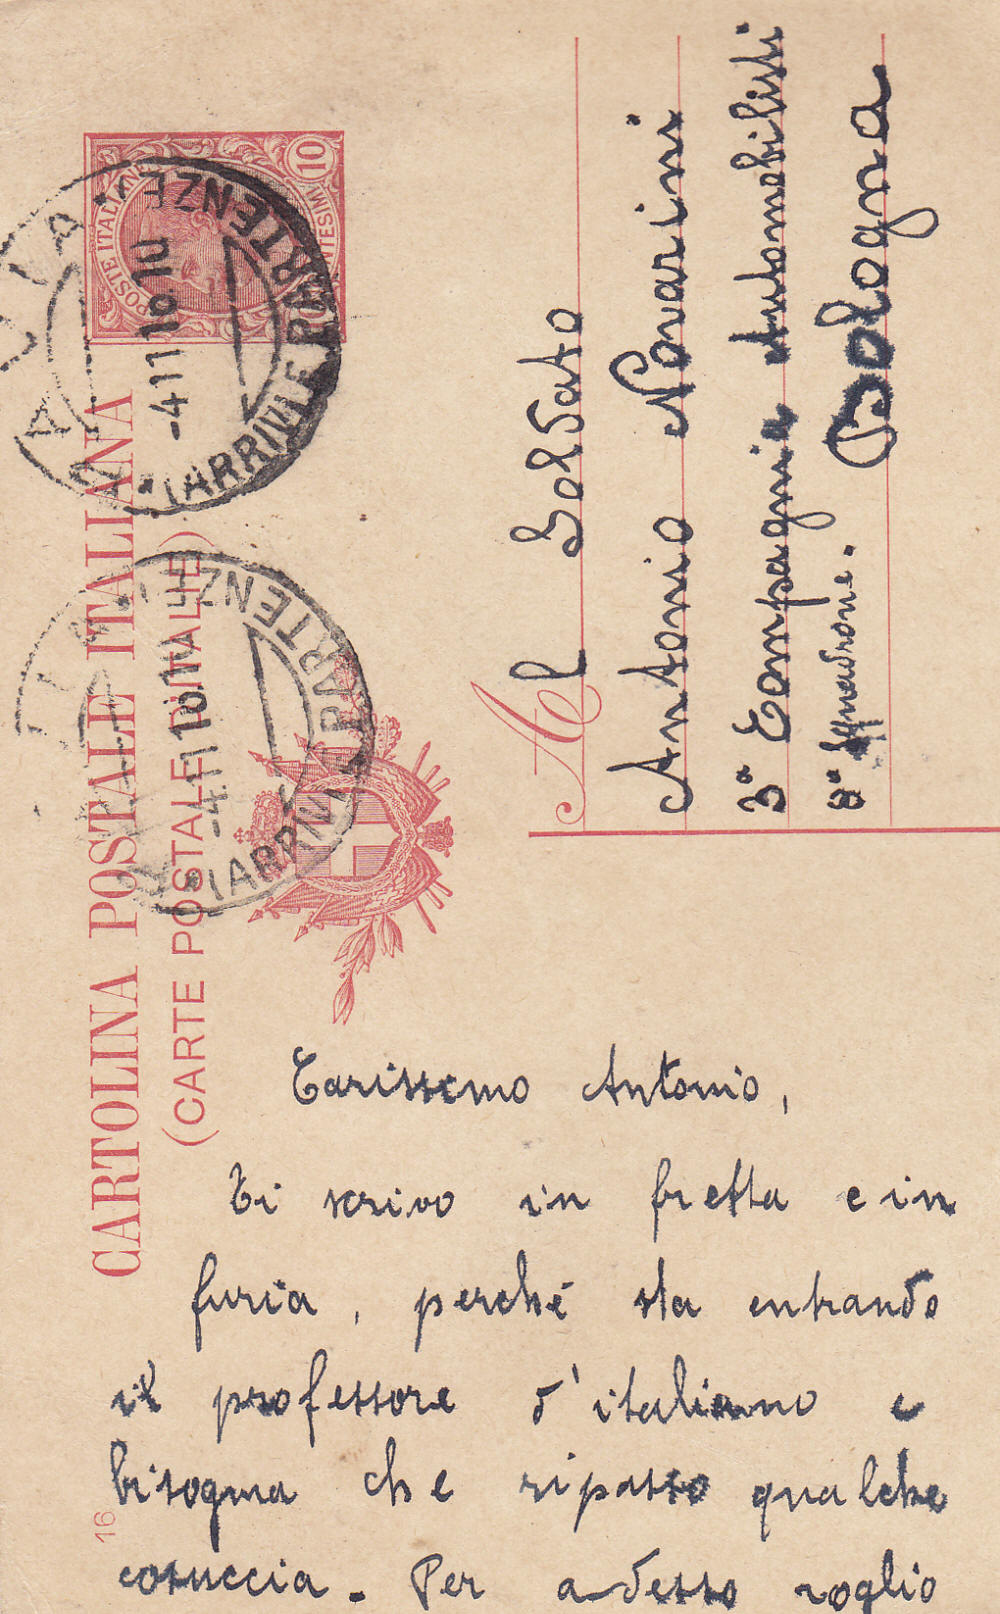 CARTOLINA POSTALE ITALIANA
(CARTE POSTALE D'ITALIE)
POSTE ITALIANE
10
CENTESIMI
(ARRIVI E PARTENZE)
-4 11 16.10
(ARRIVI E PARTENZE)
-4 11 16.
Al Soldato
Antonio Novarini
3ª Compagnia Automobilisti
8ª Squadrone. Bologna
Carissimo Antonio,
Ti scrivo in fretta e in
furia, perché sta entrando
il professore d'italiano e
bisogna che ripasso qualche
cosuccia. Per adesso voglio
16